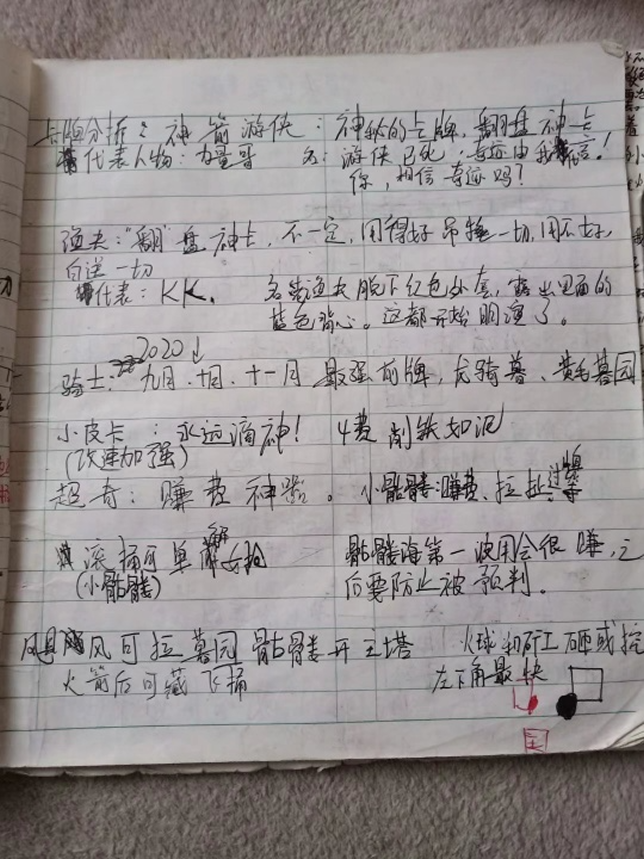 卡牌分折：神箭游侠：神秘的卡牌，翻盘神卡
代表人物：力量哥 名：游侠已死，奇迹由我！
你，相信奇迹吗？
渔夫："翻"盘神卡，不一定，用得好吊捶一切，用不好，
白送一切
代表：KK。 名告渔夫脱下红色外套，露出里面的
蓝色背心。这都开始明演了。
2020↓
骑士：九月、十月、十一月 最强前牌，龙骑兽、黄毛墓园
小皮卡：永远滴神！ 4费 削铁如泥
(改速加强)
超奇：赚费神器。小骷髅：赚费、拉扯、过牌等
滚桶可单解女枪 骷髅海第一波用会很赚，之
(小骷髅) 后要防止被预判。
飓风可拉墓园骷髅开主塔 火球和矿工砸或挖
火箭后可藏飞桶 左下角最快
王